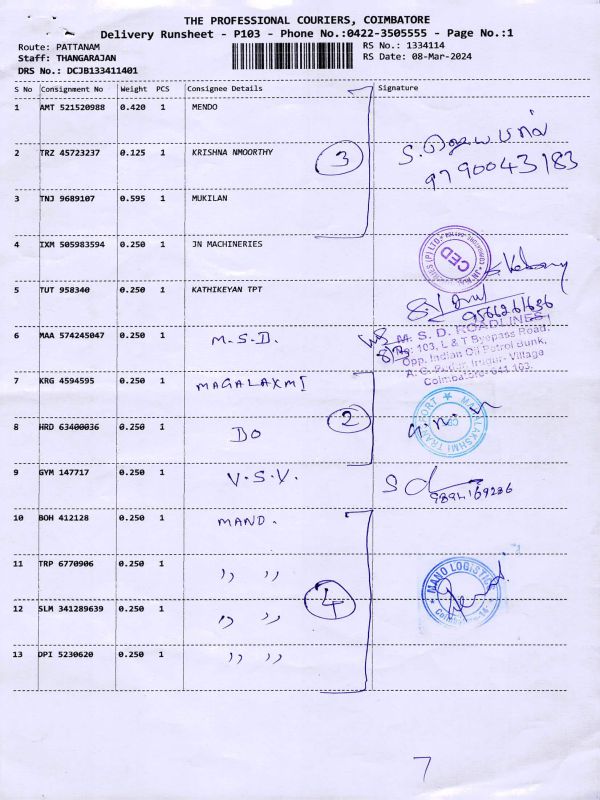 THE PROFESSIONAL COURIERS, COIMBATORE
Delivery Runsheet - P103 - Phone No.:0422-3505555 - Page No.:1
Route: PATTANAM RS No.: 1334114
Staff: THANGARAJAN RS Date: 08-Mar-2024
DRS No.: DCJB133411401
S No Consignment No Weight PCS Consignee Details Signature
1 AMT 521520988 0.420 1 MENDO
2 TRZ 45723237 0.125 1 KRISHNA NMOORTHY 3
9790043183
3 TNJ 9689107 0.595 1 MUKILAN
4 IXM 505983594 0.250 1 JN MACHINERIES
CED
5 TUT 958340 0.250 1 KATHIKEYAN TPT
9566261636
6 MAA 574245047 0.250 1 M.S.D.
M. S. D. ROADLINES
No: 103, L & T Byepass Road,
Opp. Indian Oil Petrol Bunk,
Village
Coimbatore-641 103.
7 KRG 4594595 0.250 1 MAGALAXMI
8 HRD 63400036 0.250 1 DO 2
MAHALAKSHMI TRANSPORT
9 GYM 147717 0.250 1 V.S.V.
9894169236
10 BOH 412128 0.250 1 MANO.
11 TRP 6770906 0.250 1 ,, ,,
MANO LOGISTICS
12 SLM 341289639 0.250 1 ,, ,, 4
13 DPI 5230620 0.250 1 ,, ,,
7